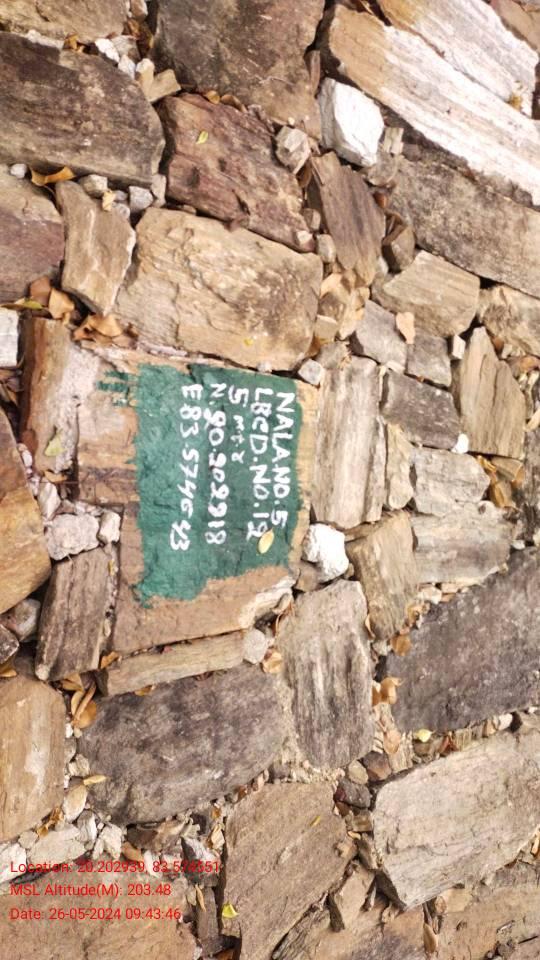 NALA.NO.5
LBCD.NO.12
5 mtr
N 20.202918
E 83.574643
Location: 20.202939, 83.574551
MSL Altitude(M): 203.48
Date: 26-05-2024 09:43:46